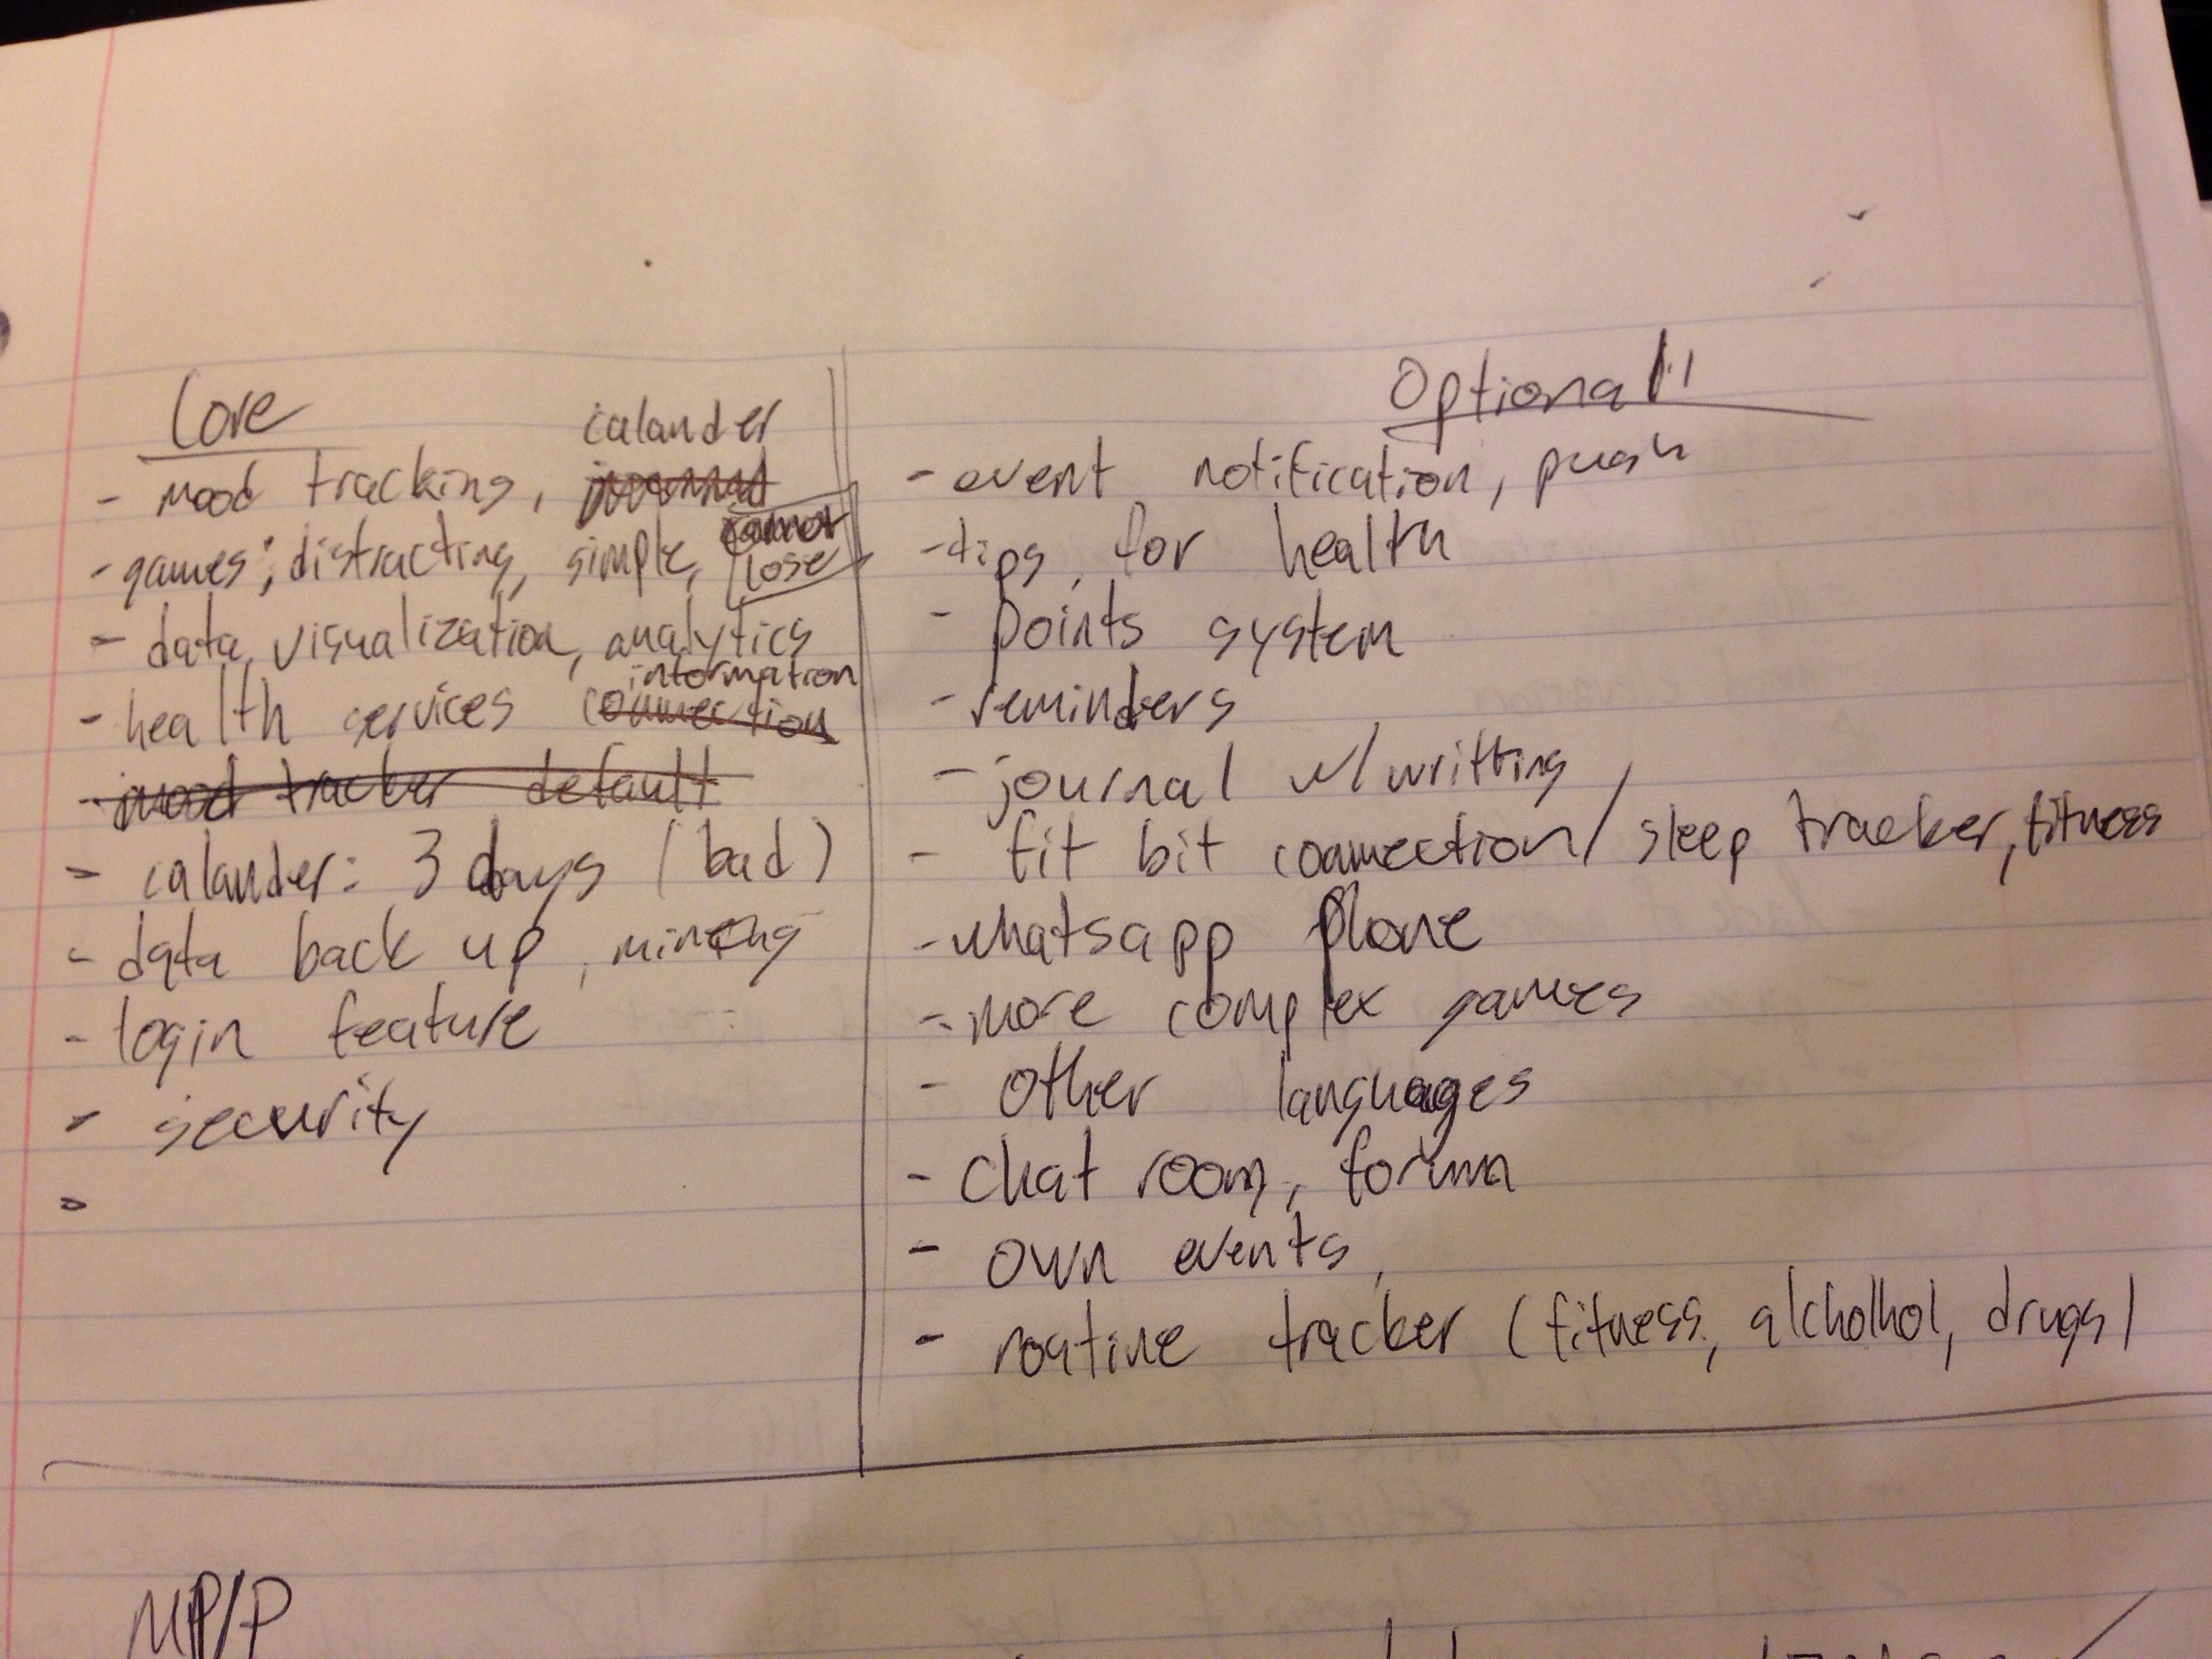 Core
calander
- mood tracking,
- games; distracting, simple, lose
- data, visualization, analytics
information
- health services connection
- mood tracker default
- calander: 3 days (bad)
- data back up, mining
- login feature
- security
-
Optional
- event notification, push
- tips for health
- points system
- reminders
- journal w/ writting
- fit bit connection/ sleep tracker, fitness
- whatsapp phone
- more complex games
- other languages
- chat room, forum
- own events
- routine tracker (fitness, alcholhol, drugs)